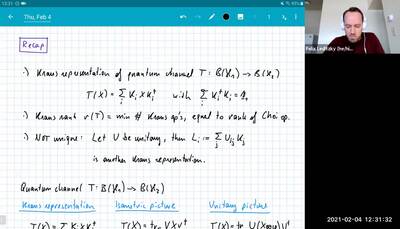 12:31
Thu, Feb 4
Recap
·) Kraus representation of quantum channel T: B(H₁) → B(H₂)
T(X) = Σᵢ Kᵢ X Kᵢ† with Σᵢ Kᵢ† Kᵢ = 1₁
·) Kraus rank r(T) = min # Kraus op's, equal to rank of Choi op.
·) Not unique: Let U be unitary, then Lᵢ := Σⱼ Uᵢⱼ Kⱼ
is another Kraus representation.
Quantum channel T: B(H₁) → B(H₂)
Kraus representation Isometric picture Unitary picture
T(X) = Σ Kᵢ X Kᵢ† T(X) = tr V X V† T(X) = tr U(X
Felix Leditzky
2021-02-04 12:31:32